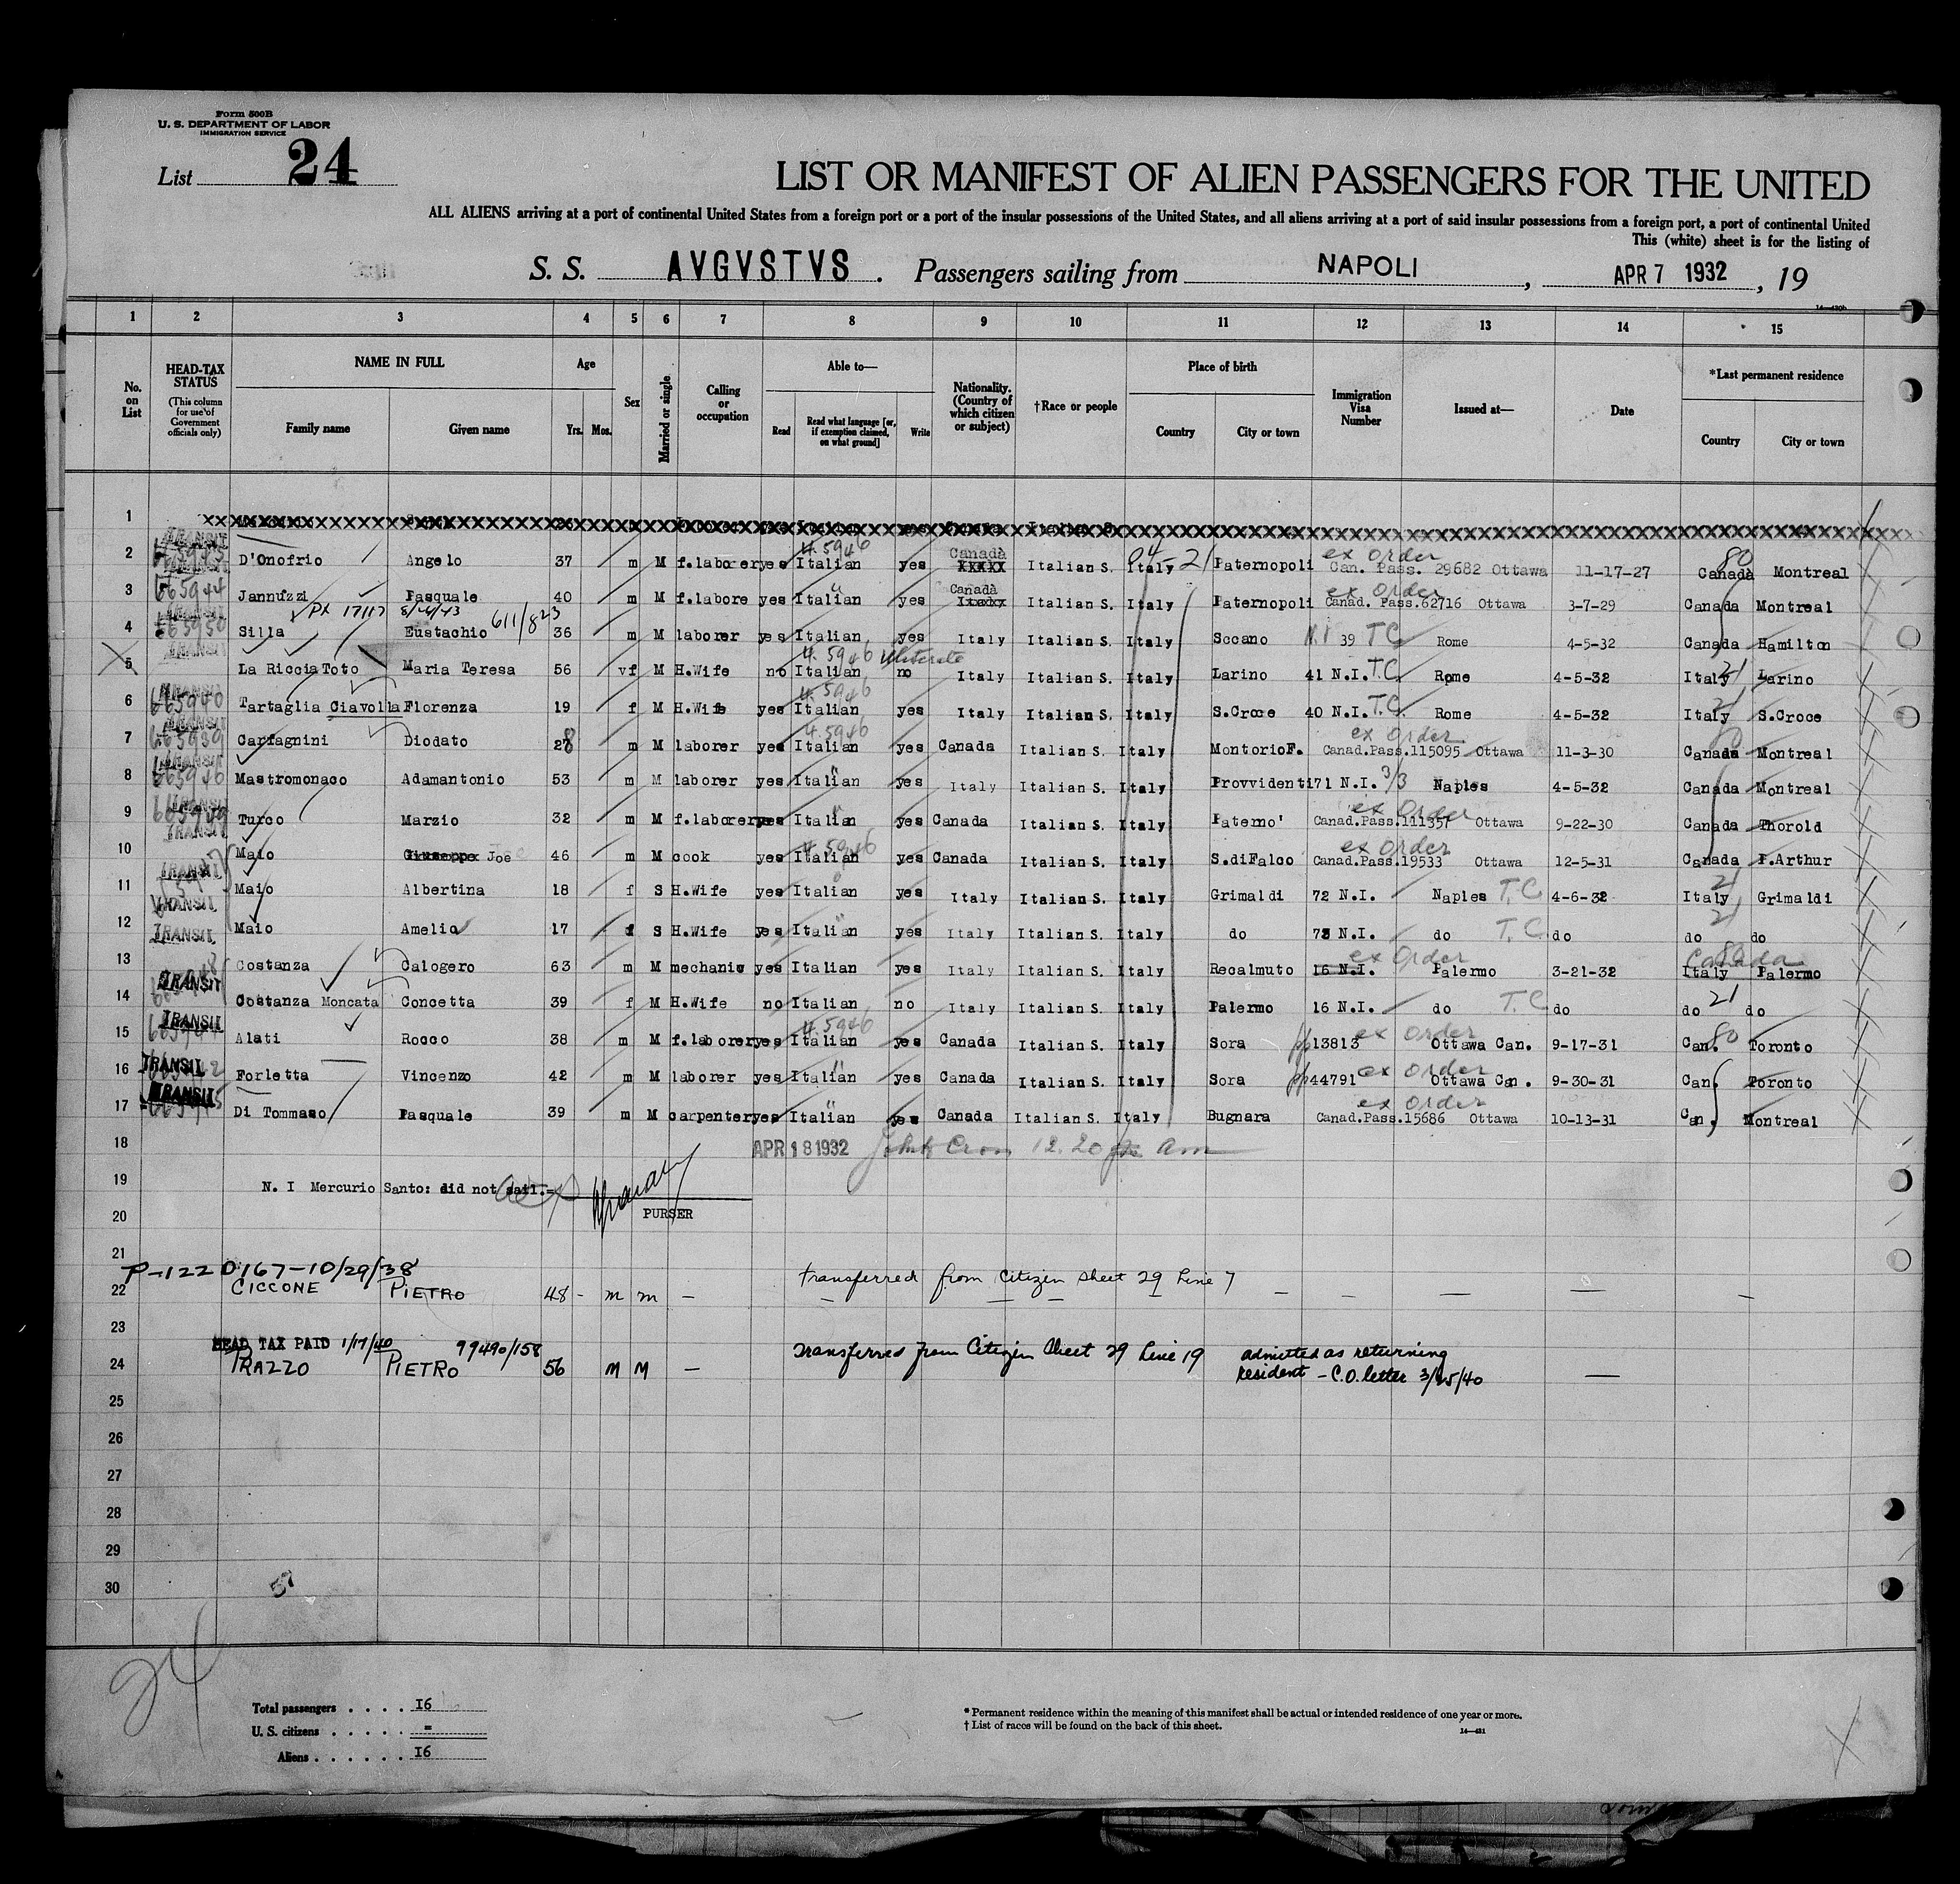 Form 500B
U. S. DEPARTMENT OF LABOR
IMMIGRATION SERVICE
List 24
LIST OR MANIFEST OF ALIEN PASSENGERS FOR THE UNITED
ALL ALIENS arriving at a port of continental United States from a foreign port or a port of the insular possessions of the United States, and all aliens arriving at a port of said insular possessions from a foreign port, a port of continental United
This (white) sheet is for the listing of
S. S. AVGVSTVS . Passengers sailing from NAPOLI , APR 7 1932 , 19
1 2 3 4 5 6 7 8 9 10 11 12 13 14 15
No. on List HEAD-TAX STATUS (This column for use of Government officials only) NAME IN FULL Family name Given name Age Yrs. Mos. Sex Married or single Calling or occupation Able to— Read Read what language [or, if exemption claimed, on what ground] Write Nationality. (Country of which citizen or subject) †Race or people Place of birth Country City or town Immigration Visa Number Issued at— Date *Last permanent residence Country City or town
1
2 TRANSIT 665943 D'Onofrio Angelo 37 m M f.laborer yes Italian 4.5946 yes Canadà XXXXX Italian S. Italy 04-21 Paternopoli ex order Can. Pass. 29682 Ottawa 11-17-27 Canada 80 Montreal
3 TRANSIT 665944 Jannuzzi Pasquale 40 m M f.labore yes Italian " yes Canadà Italian S. Italy Paternopoli ex order Canad. Pass.62716 Ottawa 3-7-29 Canada Montreal
PX 17117 611/823
4 TRANSIT 665950 Silla Eustachio 36 m M laborer yes Italian yes Italy Italian S. Italy Sccano N.I 39 T.C Rome 4-5-32 Canada Hamilton
5 TRANSIT La Riccia Toto Maria Teresa 56 f M H.Wife no Italian 4.5946 no Illiterate Italy Italian S. Italy Larino 41 N.I. T.C Rome 4-5-32 Italy 21 Larino
6 TRANSIT 665940 Tartaglia Ciavolla Florenza 19 f M H.Wife yes Italian 4.5946 yes Italy Italian S. Italy S.Croce 40 N.I. T.C. Rome 4-5-32 Italy 21 S.Croce
7 TRANSIT 665939 Carfagnini Diodato 28 m M laborer yes Italian 4.5946 yes Canada Italian S. Italy MontorioF. ex order Canad.Pass.115095 Ottawa 11-3-30 Canada Montreal
8 TRANSIT 665946 Mastromonaco Adamantonio 53 m M laborer yes Italian " yes Italy Italian S. Italy Provvidenti 71 N.I. 3/3 Naples 4-5-32 Canada Montreal
9 TRANSIT Turco Marzio 32 m M f.laborer yes Italian " yes Canada Italian S. Italy Paterno' ex Order Canad.Pass.111357 Ottawa 9-22-30 Canada Thorold
10 TRANSIT Maio Giuseppe Joe 46 m M cook yes Italian 4.5946 yes Canada Italian S. Italy S.diFalco ex Order Canad.Pass.19533 Ottawa 12-5-31 Canada P.Arthur
11 TRANSIT Maio Albertina 18 f S H.Wife yes Italian yes Italy Italian S. Italy Grimaldi 72 N.I. Naples T.C. 4-6-32 Italy 21 Grimaldi
12 TRANSIT Maio Amelia 17 f S H.Wife yes Italian " yes Italy Italian S. Italy do 73 N.I. do T.C do do 21 do
13 TRANSIT Costanza Calogero 63 m M mechanic yes Italian yes Italy Italian S. Italy Recalmuto ex Order 16 N.I. Palermo 3-21-32 Canada Italy Palermo
14 TRANSIT Costanza Moncata Concetta 39 f M H.Wife no Italian no Italy Italian S. Italy Palermo 16 N.I. do T.C do do 21 do
15 TRANSIT Alati Rocco 38 m M f.laborer yes Italian 4.5946 yes Canada Italian S. Italy Sora pp13813 ex order Ottawa Can. 9-17-31 Can. 80 Toronto
16 TRANSIT Forletta Vincenzo 42 m M laborer yes Italian " yes Canada Italian S. Italy Sora pp44791 ex order Ottawa Can. 9-30-31 Can. Toronto
17 TRANSIT Di Tommaso Pasquale 39 m M carpenter yes Italian " yes Canada Italian S. Italy Bugnara ex order Canad.Pass.15686 Ottawa 10-13-31 Can. Montreal
18 APR 18 1932 12.20 am
19 N. I Mercurio Santo: did not sail.-
20 PURSER
21
P-122 0167-10/29/38
22 CICCONE PIETRO 48 - m m - transferred from Citizen sheet 29 Line 7
23
HEAD TAX PAID 1/17/40 99490/158
24 PRAZZO PIETRO 56 M M - Transferred from Citizen Sheet 29 Line 19 admitted as returning resident - C.O. letter 3/25/40
25
26
27
28
29
30
24
Total passengers . . . . I6
U. S. citizens . . . . . =
Aliens . . . . . . I6
* Permanent residence within the meaning of this manifest shall be actual or intended residence of one year or more.
† List of races will be found on the back of this sheet.
14—431